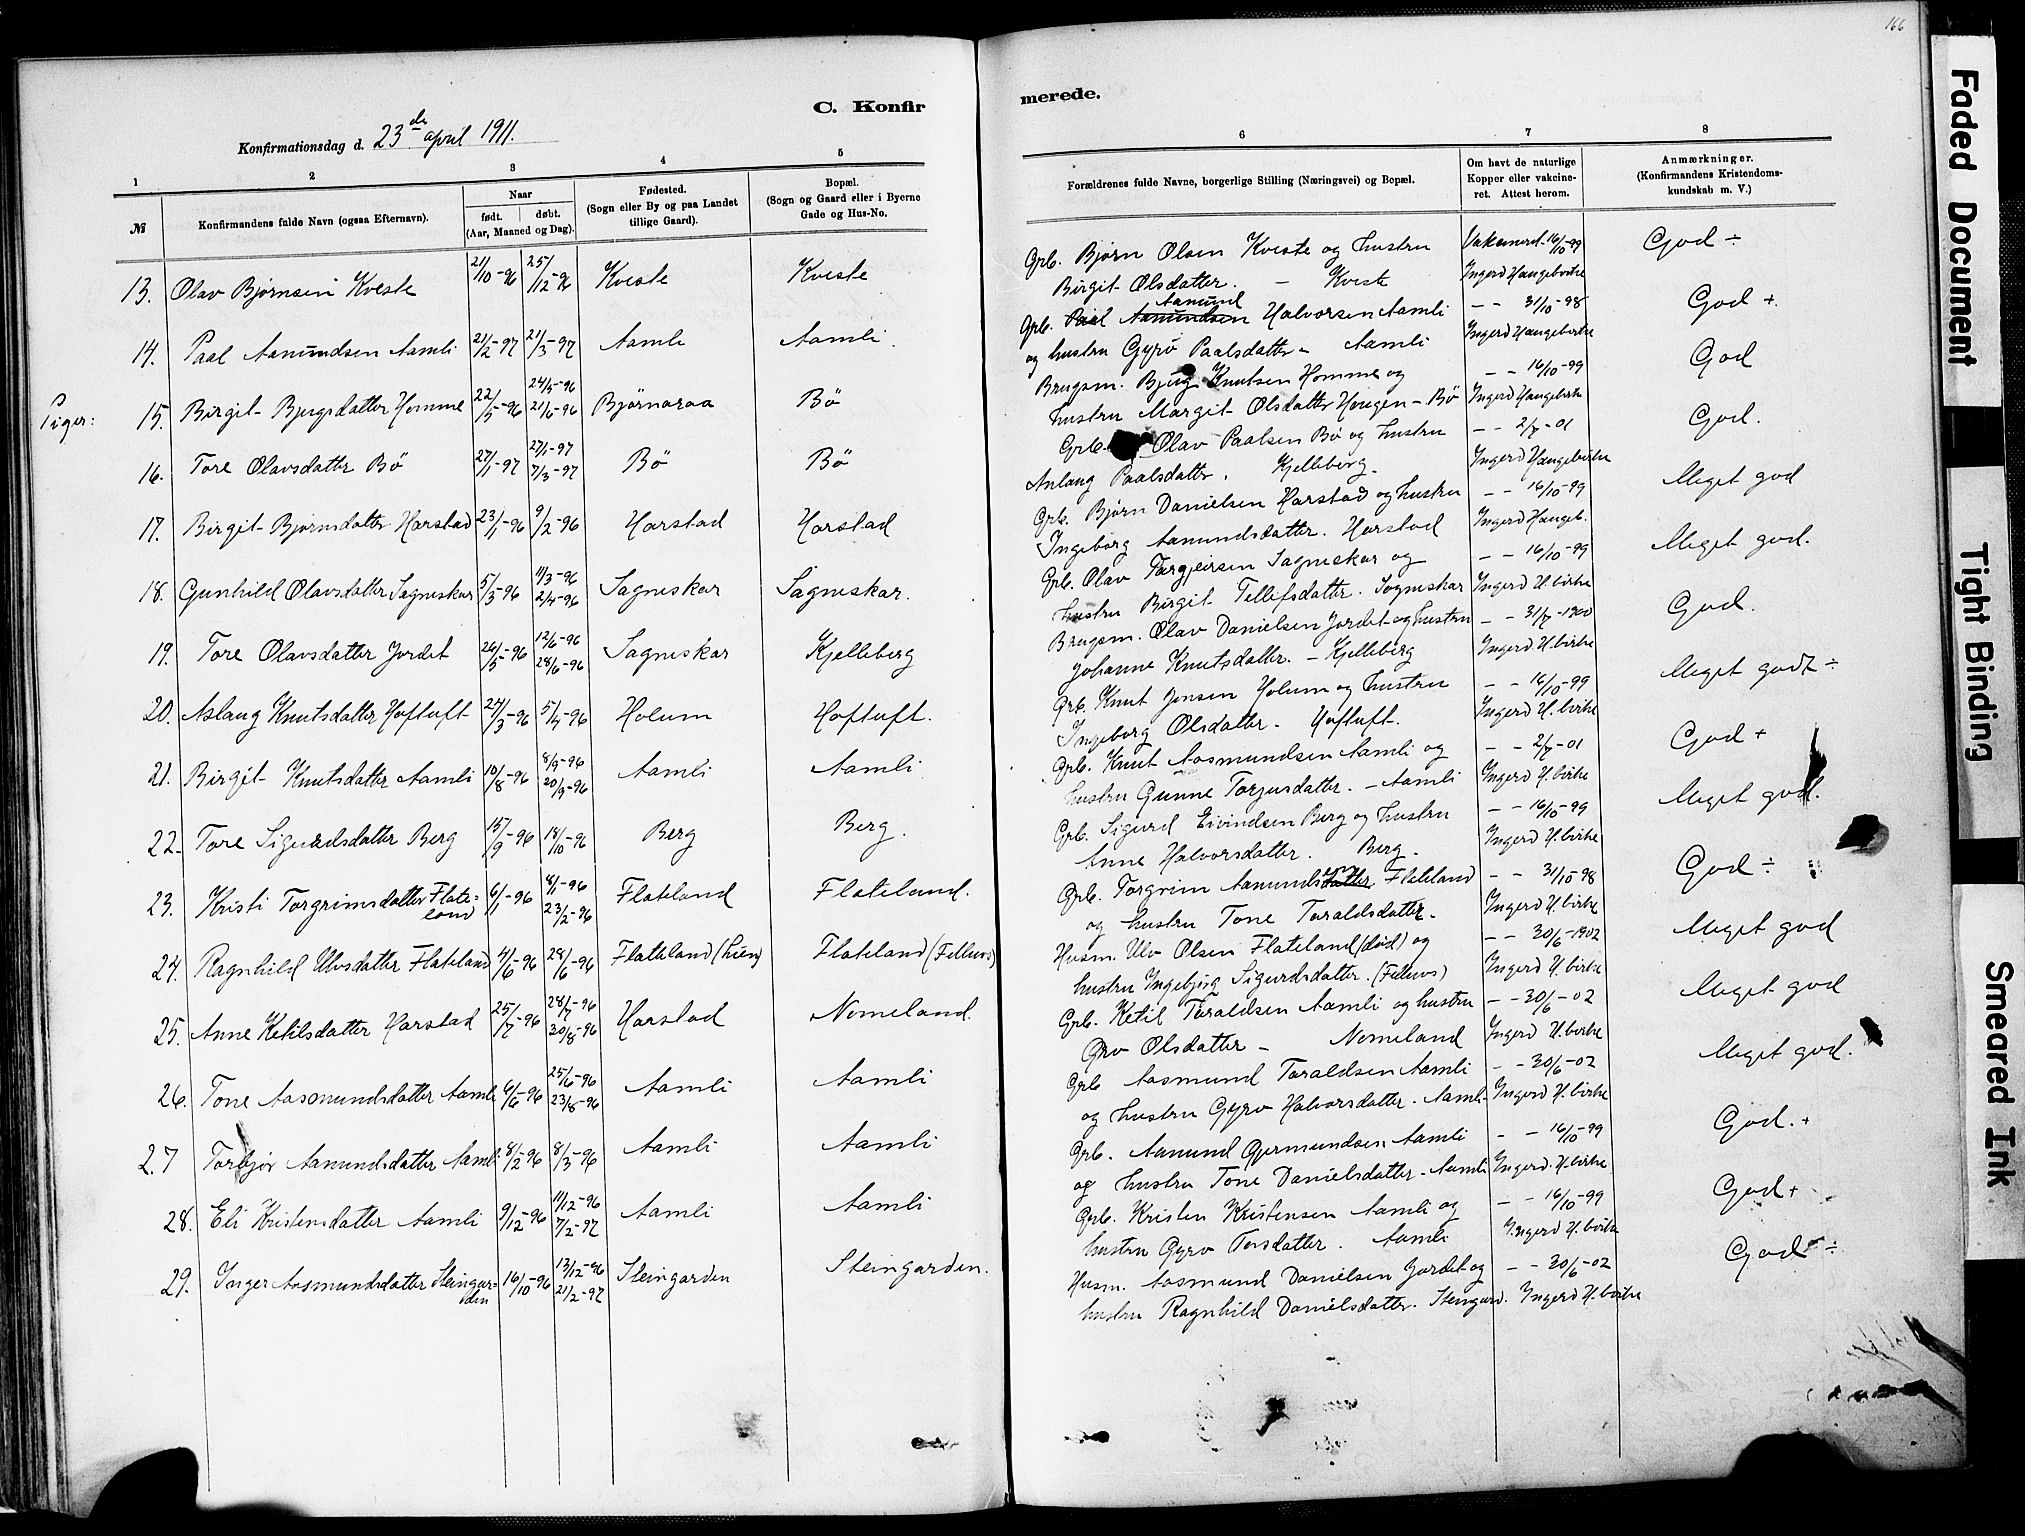 166
C. Konfir
merede.
Konfirmationsdag d. 23de april 1911.
1 2 3 4 5
№
Konfirmandens fulde Navn (ogsaa Efternavn).
Naar
født. døbt.
(Aar, Maaned og Dag).
Fødested.
(Sogn eller By og paa Landet
tillige Gaard).
Bopæl.
(Sogn og Gaard eller i Byerne
Gade og Hus-No.
13. Olav Bjørnsen Kveste 21/10-96 25/12-96 Kveste Kveste
14. Paal Aanundsen Aamli 21/2-97 21/3-97 Aamli Aamli.
Piger: 15. Birgit Bjugsdatter Homme 22/5-96 24/5-96 21/6-96 Bjørnaraa Bö
16. Tore Olavsdatter Bö 27/1-97 27/1-97 7/3-97 Bö Bö
17. Birgit Bjørnsdatter Harstad 23/1-96 9/2-96 Harstad Harstad
18. Gunhild Olavsdatter Sagneskar 5/3-96 11/3-96 2/4-96 Sagneskar Sagneskar.
19. Tore Olavsdatter Jordet 26/5-96 12/6-96 28/6-96 Sagneskar Kjelleberg
20. Aslaug Knutsdatter Hoftuft 24/3-96 5/4-96 Holum Hoftuft.
21. Birgit Knutsdatter Aamli 10/8-96 8/9-96 20/9-96 Aamli Aamli
22. Tore Sigurdsdatter Berg 15/9-96 18/10-96 Berg Berg.
23. Kristi Torgrimsdatter Flate-
land 6/1-96 8/1-96 23/2-96 Flateland Flateland.
24. Ragnhild Ulvsdatter Flateland 4/6-96 28/6-96 Flateland (Lien) Flateland (Felleus)
25. Anne Ketilsdatter Harstad 25/7-96 28/7-96 30/8-96 Harstad Nomeland.
26. Tone Aasmundsdatter Aamli 6/6-96 25/6-96 23/8-96 Aamli Aamli
27 Torbjør Aanundsdatter Aamli 8/2-96 8/3-96 Aamli Aamli
28. Eli Kristensdatter Aamli 9/12-96 11/12-96 7/2-97 Aamli Aamli
29. Inger Aasmundsdatter Steingar-
den 16/10-96 13/12-96 21/2-97 Steingarden Steingarden.
6 7 8
Forældrenes fulde Navne, borgerlige Stilling (Næringsvei) og Bopæl.
Om havt de naturlige
Kopper eller vakcine-
ret. Attest herom.
Anmærkninger.
(Konfirmandens Kristendoms-
kundskab m. V.)
Grb. Bjørn Olsen Kveste og hustru Vakcineret 16/10-99 God ÷
Birgit Olsdatter. - Kveste Ingerd Haugebirke
Grb. Paal Aanundsen Aanund Halvorsen Aamli - - 31/10-98 God +
og hustru Gyro Paalsdatter - Aamli Ingerd Haugebirke
Brugsm. Bjug Knutsen Homme og - - 16/10-99 God
hustru Margit Olsdatter Haugen - Bö Ingerd Haugebirke
Grb. Olav Paalsen Bö og hustru - - 2/7-01 God.
Aslaug Paalsdatter. Kjelleberg. Ingerd Haugebirke
Grb. Bjørn Danielsen Harstad og hustru - - 16/10-99 Meget god
Ingeborg Aanundsdatter. Harstad Ingerd Haugeb.
Grb. Olav Targjeirsen Sagneskar og - - 16/10-99 Meget god.
hustru Birgit Tellefsdatter. Sagneskar Ingerd H. birke
Brugsm. Olav Danielsen Jordet og hustru - - 31/7-1900 God.
Johanne Knutsdatter. - Kjelleberg Ingerd H. birke
Grb. Knut Jonsen Holum og hustru - - 16/10-99 Meget godt ÷
Ingeborg Olsdatter. Hoftuft. Ingerd H. birke
Grb. Knut Aasmundsen Aamli og - - 2/7-01 God +
hustru Gunne Torjusdatter. - Aamli Ingerd H. birke
Grb. Sigurd Eivindsen Berg og hustru - - 16/10-99 Meget god.
Anne Halvorsdatter. Berg. Ingerd H. birke
Grb. Torgrim Aanundsdatter Flateland - - 31/10-98 God ÷
og hustru Tone Taraldsdatter. Ingerd H. birke
Husm. Ulv Olsen Flateland (död) og - - 30/6-1902 Meget god
hustru Ingebjörg Sigurdsdatter. (Felleus) Ingerd H. birke
Grb. Ketil Taraldsen Aamli og hustru - - 30/6-02 Meget god
Gro Olsdatter - Nomeland Ingerd H. birke
Grb Aasmund Taraldsen Aamli - - 30/6-02 Meget god.
og hustru Gyro Halvorsdatter. Aamli Ingerd H. birke
Grb. Aanund Gjermundsen Aamli - - 16/10-99 God. +
og hustru Tone Danielsdatter - Aamli Ingerd. H. birke
Grb. Kristen Kristensen Aamli og - - 16/10-99 God +
hustru Gyro Torsdatter. Aamli Ingerd H. birke
Husm. Aasmund Danielsen Jordet og - - 30/6-02 God ÷
hustru Ragnhild Danielsdatter. Steingard. Ingerd H. birke
Faded Document
Tight Binding
Smeared Ink